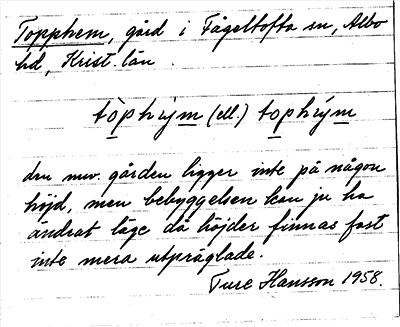 Topphem, gård i Fågeltofta sn, Albo
hd, Krist. län.
tòphæ̀ym (ell.) tophǽym
den nuv. gården ligger inte på någon
höjd, men bebyggelsen kan ju ha
ändrat läge då höjder finnas fast
inte mera utpräglade.
Ture Hansson 1958.